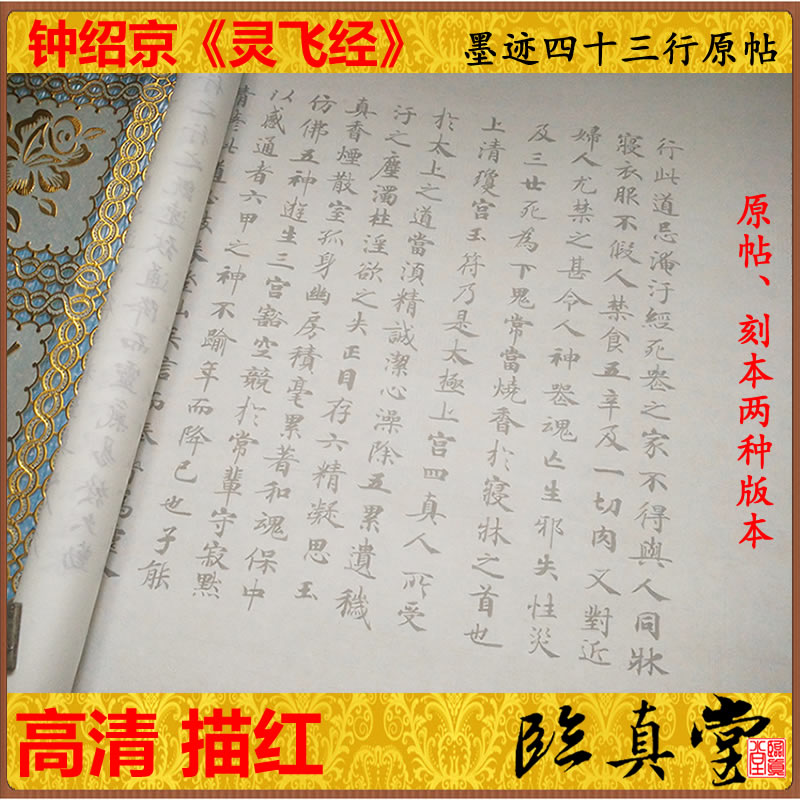 钟绍京《灵飞经》
墨迹四十三行原帖
原帖、刻本两种版本
行此道忌淹汙經死喪之家不得與人同牀
寢衣服不假人禁食五辛及一切肉又對近
婦人尤禁之甚令人神喪魂亡生邪失性災
及三世死為下鬼常當燒香於寢牀之首也
上清瓊宫玉符乃是太極上宫四真人所受
於太上之道當須精誠潔心澡除五累遺穢
汙之塵濁杜淫欲之失正目存六精凝思玉
真香煙散室孤身幽房積毫累著和魂保中
仿佛五神遊生三宫豁空競於常輩守寂默
以感通者六甲之神不踰年而降已也子能
高清 描红
臨真堂